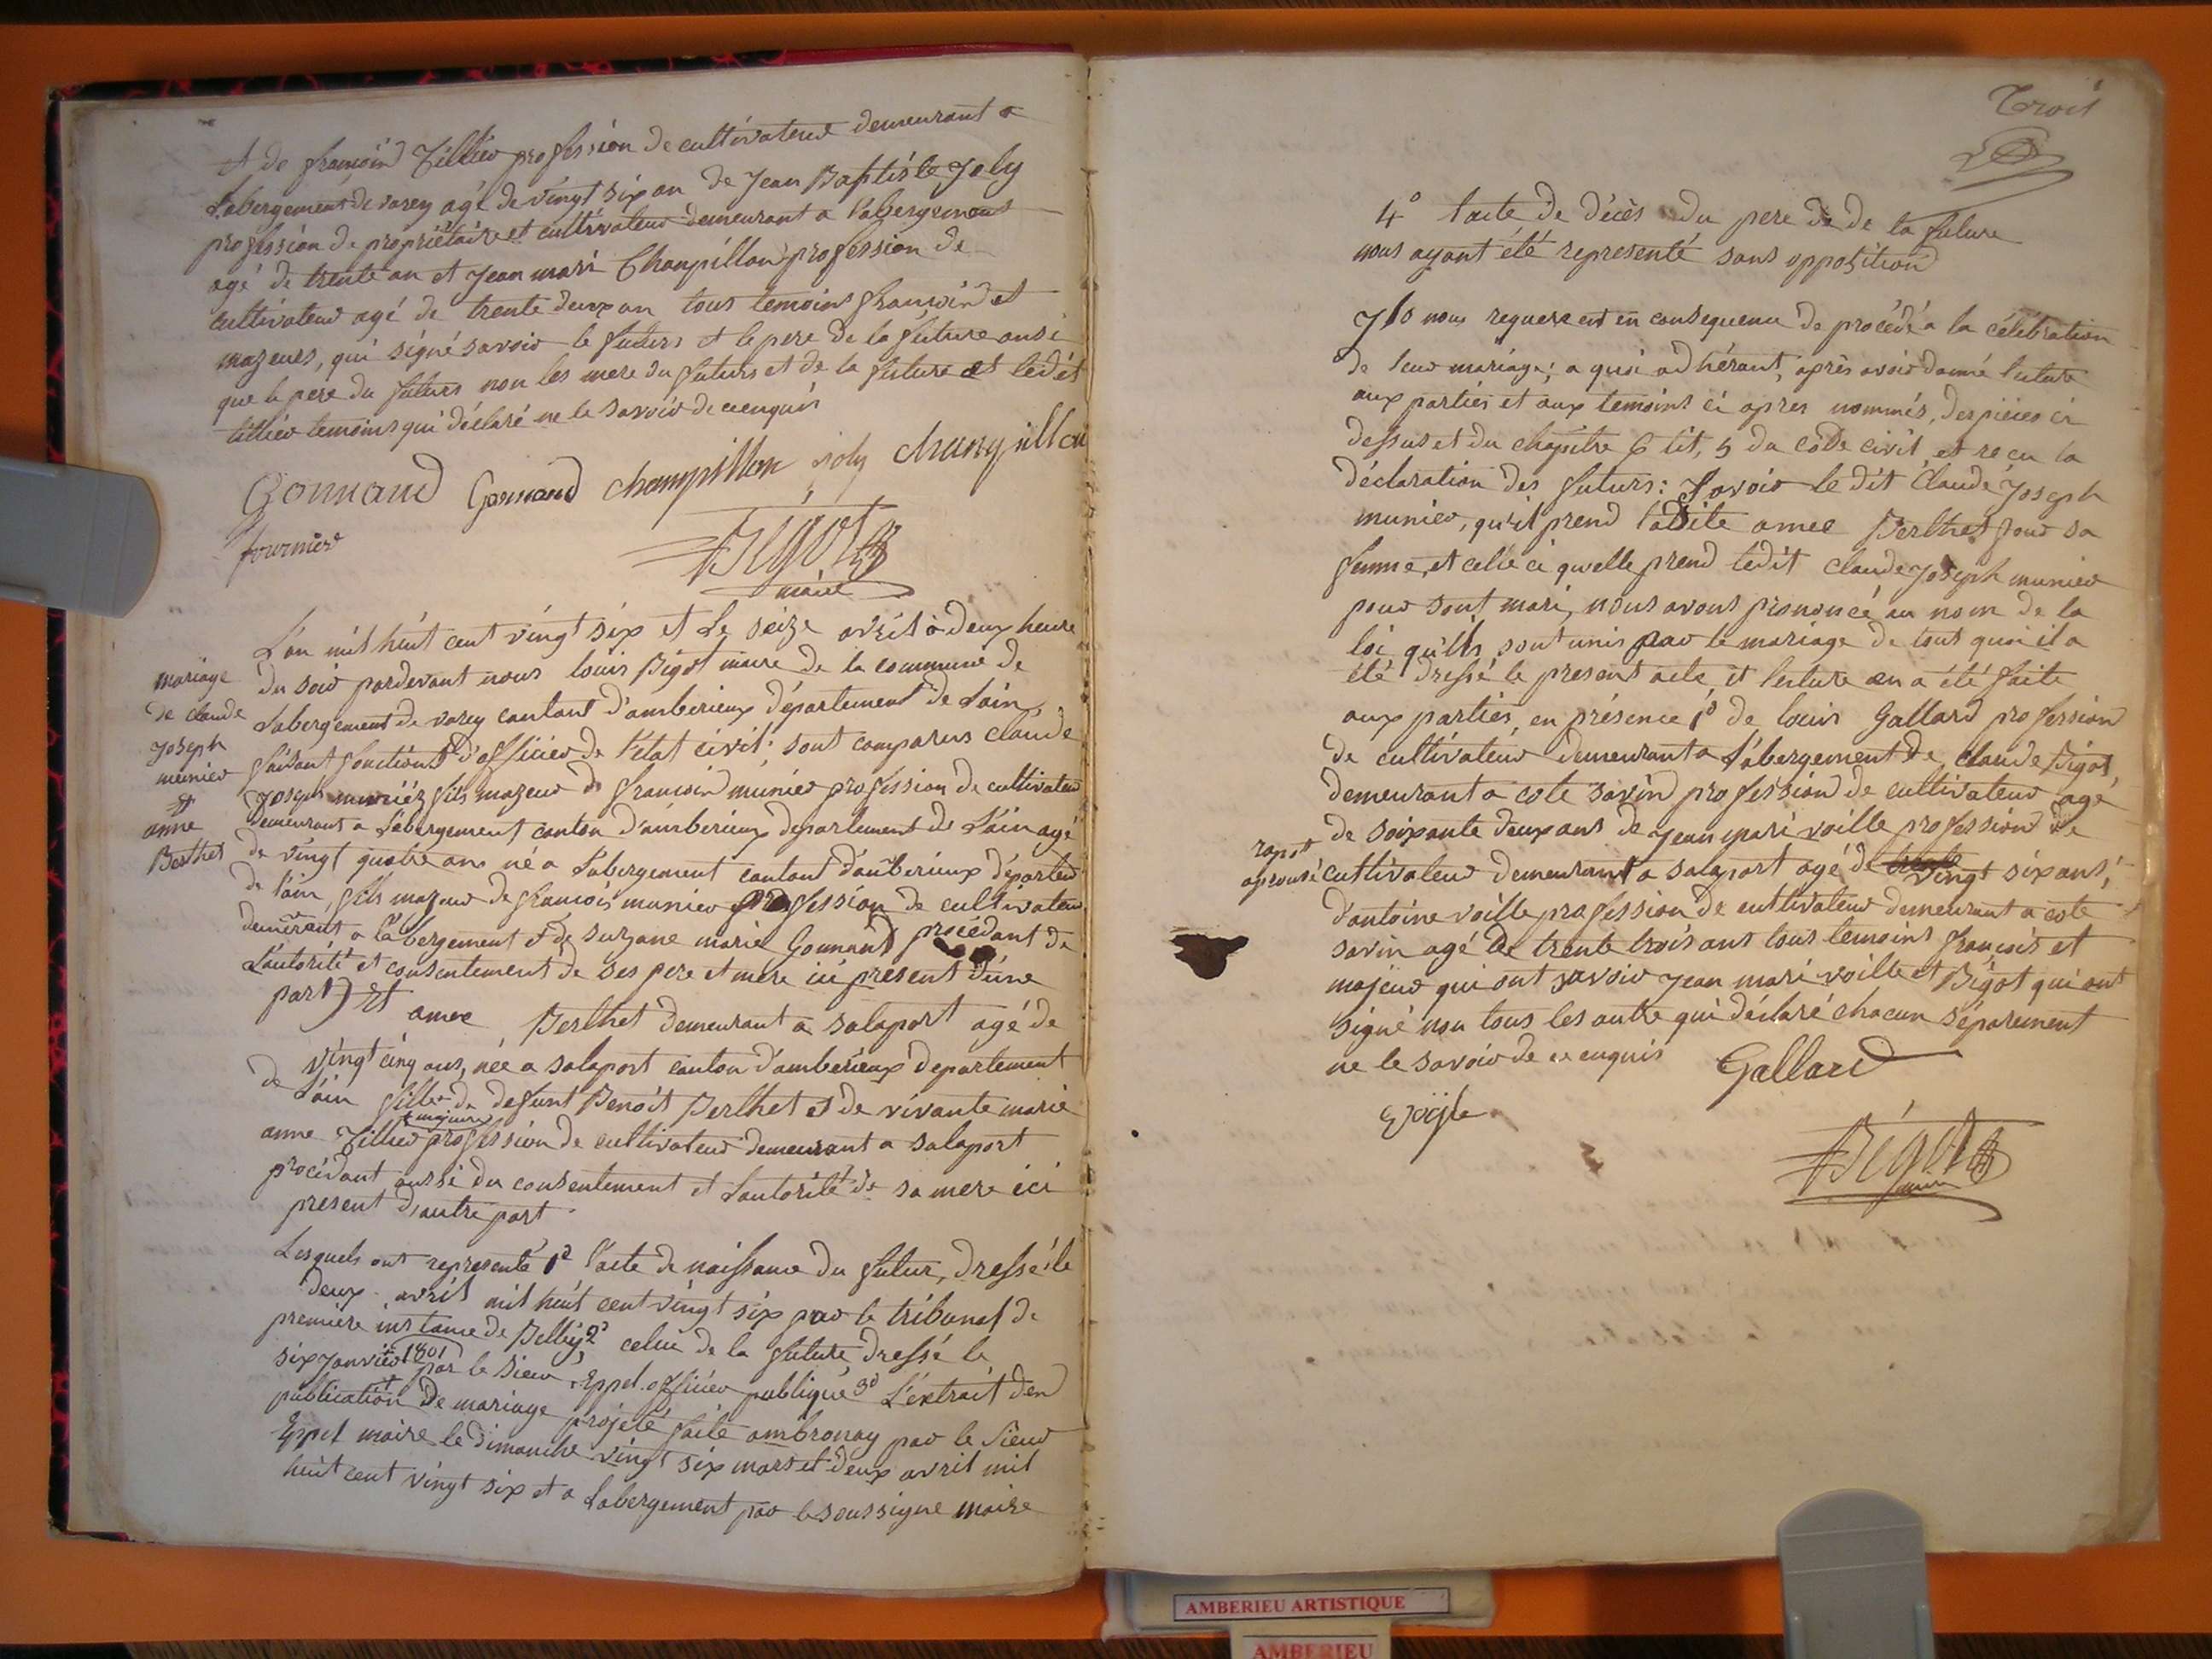 et de françoid Tillier profession de cultivateur demeurant a
Labergement de varey agé de vingt six an de Jean Baptiste Joly
profession de propriétaire et cultivateur demeurant a labergement
agé de trente an et Jean mari Champillon profession de
cultivateur agé de trente deux an tous temoins françoid et
majeurs, qui signé savoir le futurs et le pere de la future ausi
que le pere du futurs non les mere du futurs et de la future et ledit
tillier temoins qui déclaré ne le savoir de ce enquis
Gonnand Gonnand champillon joly champillon
fournier
Bigot
maire
mariage
de claude
joseph
munier
et
anne
Berthet
L'an mil huit cent vingt six et Le seize avril à deux heure
du soir pardevant nous louis Bigot maire de la commune de
Labergement de varey cantont d'amberieux département de Lain,
faisant fonctions d'officier de l'état civil: sont comparus claude
Joseph munier fils majeur de francoid munier profession de cultivateur
demeurant a Labergement canton d'amberieux departement de Lain agé
de vingt quatre ans né a Labergement cantont d'amberieux départem
de l'ain, fils majeur de francois munier profession de cultivateur
demeurant a labergement et de suzane marie Gonnand procédant de
L'autorité et consentement de ses pere et mere ici present d'une
part) Et amee Berthet demeurant a salaport agé de
vingt cinq ans, née a salaport canton d'amberieux departement
de Lain fille de defunt Benoit Berthet et de vivante marie
majeure
anne Tillier profession de cultivateur demeurant a salaport
procédant aussi du consentement et L'autorité de sa mere ici
present d'autre part
Lesquels ont representé 1° l'acte de naissance du futur, dressé le
deux avril mil huit cent vingt six par le tribunal de
premiere instance de Belley 2° celui de la future dressé le
six janvier 1801 par le sieur Eppel officier publique 3° L'extrait den
publication de mariage projeté faite ambronay par le Sieur
Eppel maire le dimanche vingt six mars et deux avril mil
huit cent vingt six et a Labergement par le soussigne maire
Trois
4° lacte de décès du pere de de la future
nous ayant été representé sans opposition
Ils nous requerent en consequence de procédé a la célébration
de leur mariage; a quoi adhérant, après avoir donné lecture
aux parties et aux temoins ci apres nommés, des pièces ci
dessus et du chapitre 6 tit, 5 du code civil, et recu la
déclaration des futurs: Savoir le dit Claude Joseph
munier, qu'il prend ladite amee Berthet pour sa
femme, et celle ci quelle prend ledit Claude Joseph munier
pour sont mari, nous avons prononcé au nom de la
loi qu'ils sont unis par le mariage de tout quoi il a
été dressé le present acte, et lecture en a été faite
aux parties, en présence 1° de louis Gallard profession
de cultivateur demeurant a Labergement de claude Bigot,
demeurant a cote savin profession de cultivateur agé
de soixante deux ans de Jean mari voille profession de
rapot
aprouvé
cultivateur demeurant a salaport agé de trente vingt six ans,
d'antoine voille profession de cultivateur demeurant a cote
savin agé de trente trois ans tous temoins françois et
majeur qui ont savoir Jean mari voille et Bigot qui ont
signé non tous les autre qui déclaré chacun séparement
ne le savoir de ce enquis Gallard
voille
Bigot
maire
AMBERIEU ARTISTIQUE
AMBERIEU